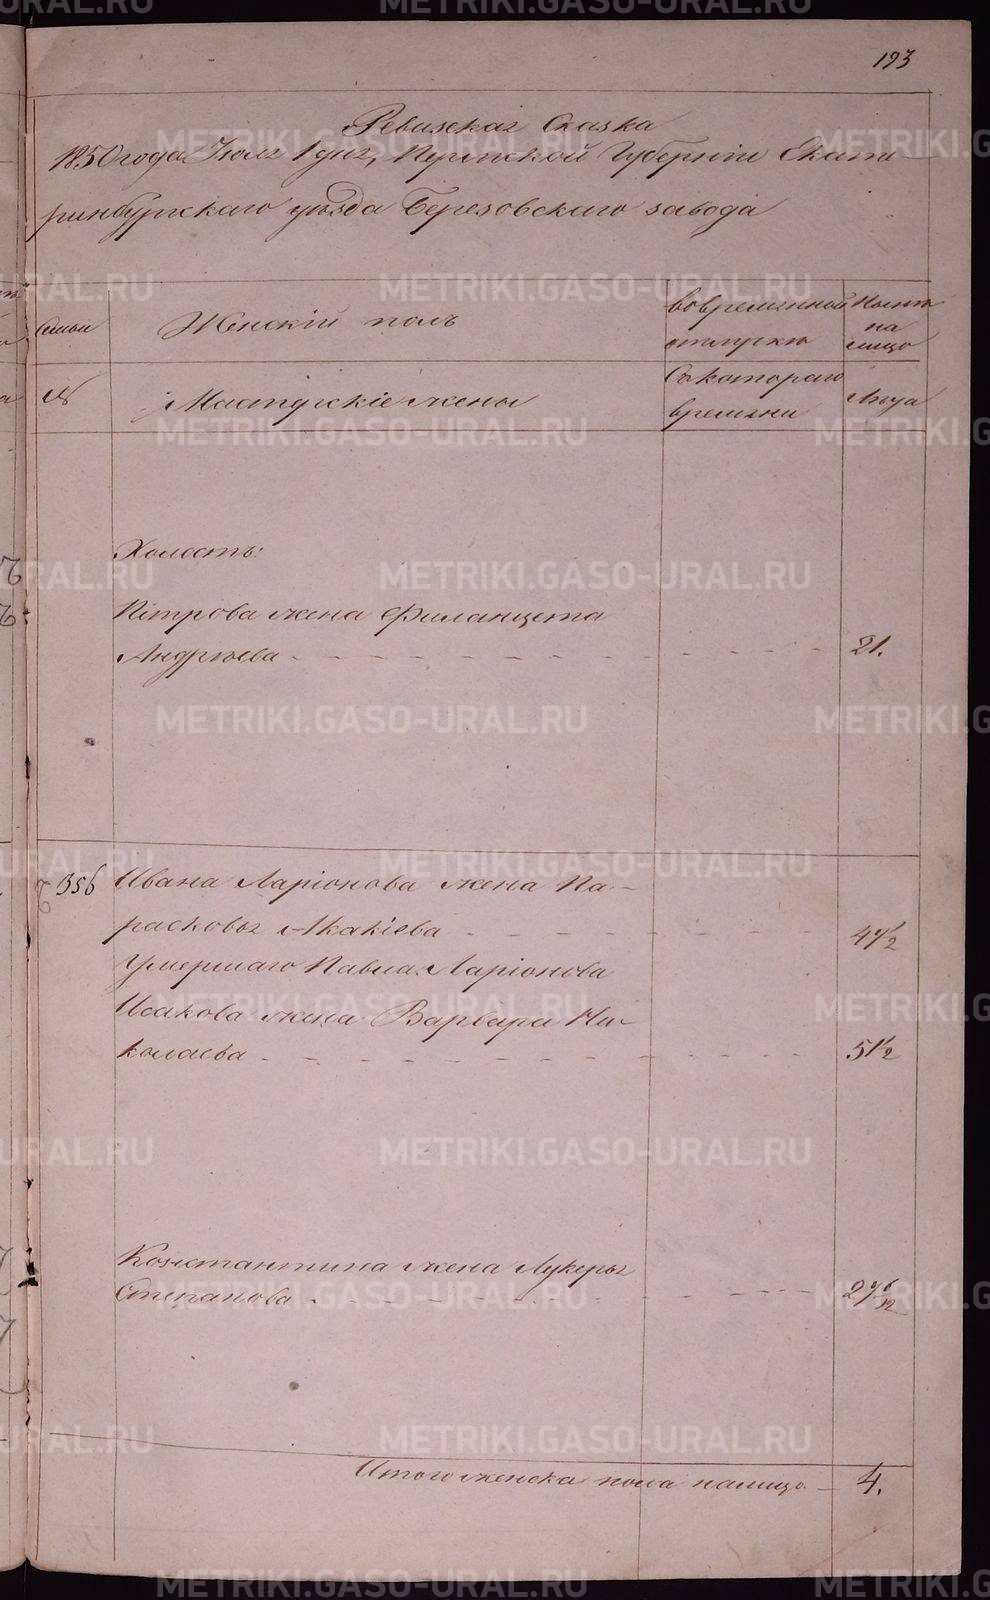 193
Ревизская Сказка
1850 года Июля 1 дня, Пермской Губернiи Екате-
ринбургскаго уѣзда Березовскаго завода
Семьи
Женскiй полъ
во временной отлучкѣ
Нынѣ на лицо
№
Мастерскiе жены
Съ котораго времяни
Лѣта
Холостъ:
Петрова жена Филанцета
Андрѣева - - - 21.
356 Ивана Ларiонова жена Па-
расковья Акакiева - - - 49/2
Умершаго Павла Ларiонова
Исакова жена Варвара Ни-
колаева - - - 51/2
Константина жена Лукерья
Степанова - - - 29 6/12
Итого женска пола налицо - 4.
METRIKI.GASO-URAL.RU